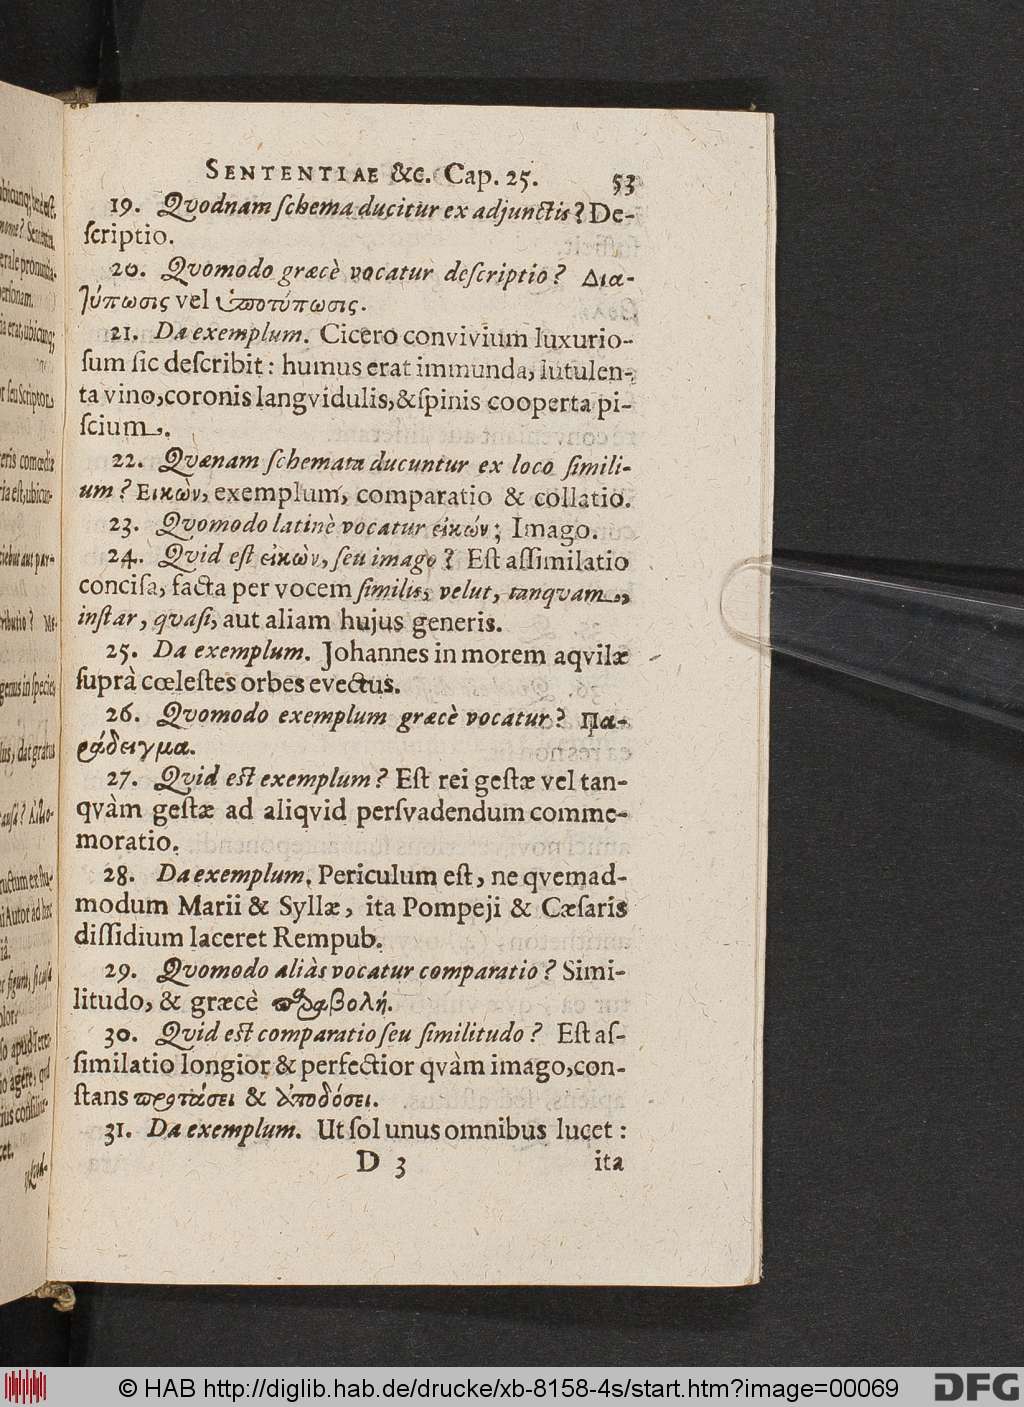 SENTENTIAE &c. Cap. 25. 53
19. Qvodnam ſchema ducitur ex adjunctis? De-
ſcriptio.
20. Qvomodo græcè vocatur deſcriptio? Δια-
τύπωσις vel ὑποτύπωσις.
21. Da exemplum. Cicero convivium luxurio-
ſum ſic deſcribit: humus erat immunda, lutulen-
ta vino, coronis langvidulis, & ſpinis cooperta pi-
ſcium.
22. Qvænam ſchemata ducuntur ex loco ſimili-
um? Εικὼν, exemplum, comparatio & collatio.
23. Qvomodo latinè vocatur εἰκών; Imago.
24. Qvid eſt εἰκὼν, ſeu imago? Eſt aſſimilatio
conciſa, facta per vocem ſimilis, velut, tanqvam,
inſtar, qvaſi, aut aliam hujus generis.
25. Da exemplum. Johannes in morem aqvilæ
ſuprà cœleſtes orbes evectus.
26. Qvomodo exemplum græcè vocatur? Πα-
ράδειγμα.
27. Qvid est exemplum? Eſt rei geſtæ vel tan-
qvàm geſtæ ad aliqvid perſvadendum comme-
moratio.
28. Da exemplum. Periculum eſt, ne qvemad-
modum Marii & Syllæ, ita Pompeji & Cæſaris
diſſidium laceret Rempub.
29. Qvomodo aliàs vocatur comparatio? Simi-
litudo, & græcè παραβολή.
30. Qvid est comparatio ſeu ſimilitudo? Eſt aſ-
ſimilatio longior & perfectior qvàm imago, con-
ſtans προτάσει & ἀποδόσει.
31. Da exemplum. Ut ſol unus omnibus lucet:
D 3 ita
© HAB http://diglib.hab.de/drucke/xb-8158-4s/start.htm?image=00069
DFG